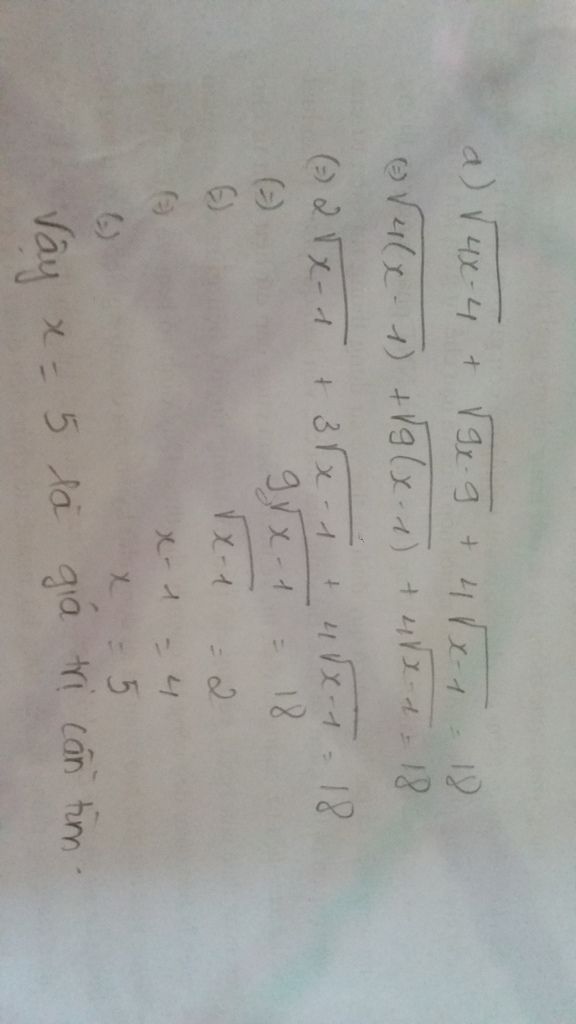 a) √(4x-4) + √(9x-9) + 4√(x-1) = 18
(=) √(4(x-1)) + √(9(x-1)) + 4√(x-1) = 18
(=) 2√(x-1) + 3√(x-1) + 4√(x-1) = 18
(=) 9√(x-1) = 18
(=) √(x-1) = 2
(=) x-1 = 4
(=) x = 5
Vậy x = 5 là giá trị cần tìm.